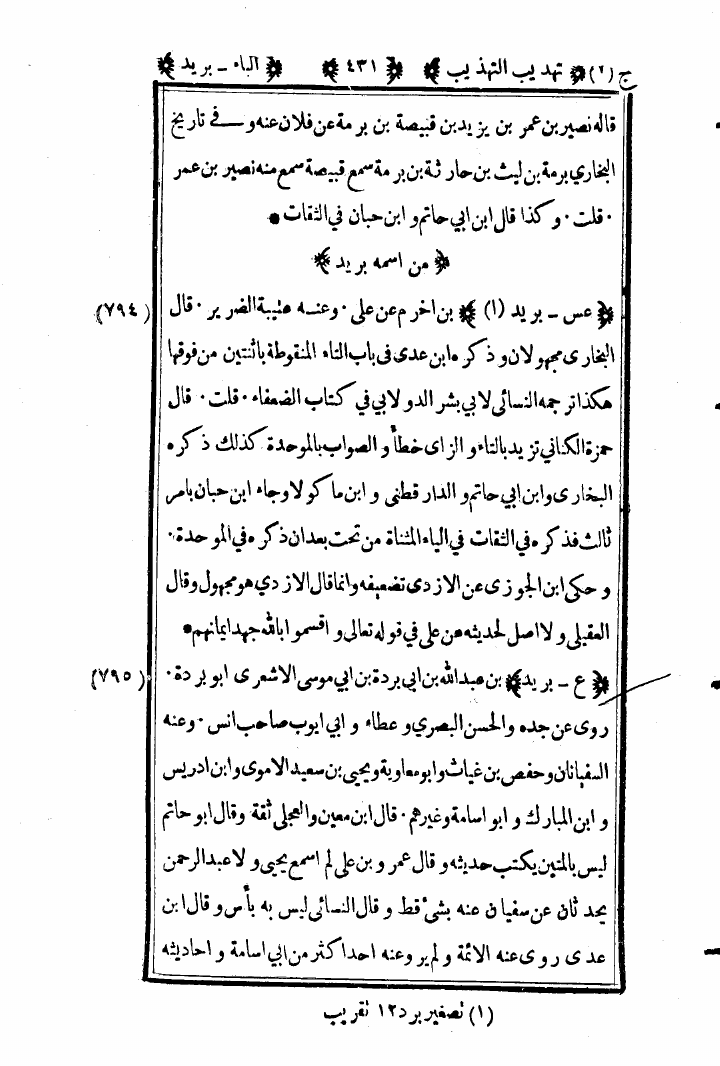 ج (٢) ﴿ تهذيب التهذيب ﴾ ﴿ ٤٣١ ﴾ ﴿ الباء ـ بريد ﴾
قاله نصير بن عمر بن يزيد بن قبيصة بن برمة عن فلان عنه و في تاريخ
البخاري برمة بن ليث بن حارثة بن برمة سمع قبيصة سمع منه نصير بن عمر
٠ قلت ٠ وكذا قال ابن ابي حاتم و ابن حبان في الثقات ●
﴿ من اسمه بريد ﴾
﴿ عس ـ بريد (١) ﴾ بن اخرم عن علي ٠ وعنه عتيبة الضرير ٠ قال (٧٩٤)
البخاري مجهولان و ذكره ابن عدى فى باب التاء المنقوطة باثنتين من فوقها
هكذا ترجمه النسائى لابي بشر الدولابي في كتاب الضعفاء ٠ قلت ٠ قال
حمزة الكناني تزيد بالتاء و الزاى خطأ و الصواب بالموحدة كذلك ذكره
البخارى وابن ابي حاتم و الدار قطنى و ابن ماكولا وجاء ابن حبان بامر
ثالث فذكره في الثقات في الياء المثناة من تحت بعد ان ذكره في الموحدة ٠
و حكى ابن الجوزى عن الازدى تضعيفه وانما قال الازدي هو مجهول وقال
العقيلى و لا اصل لحديثه عن على في قوله تعالى و اقسموا بالله جهد ايمانهم ●
﴿ ع ـ بريد ﴾ بن عبد الله بن ابي بردة بن ابي موسى الاشعرى ابو بردة ٠ (٧٩٥)
روى عن جده والحسن البصري و عطاء و ابي ايوب صاحب انس ٠ وعنه
السفيانان وحفص بن غياث وابو معاوية ويحيى بن سعيد الاموى وابن ادريس
و ابن المبارك و ابو اسامة وغيرهم ٠ قال ابن معين والعجلى ثقة وقال ابو حاتم
ليس بالمتين يكتب حديثه و قال عمرو بن على لم اسمع يحيى و لا عبد الرحمن
يحدثان عن سفيان عنه بشئ قط و قال النسائى ليس به بأس و قال ابن
عدى روى عنه الائمة و لم يرو عنه احد اكثر من ابي اسامة و احاديثه
(١) تصغير برد ١٢ تقريب